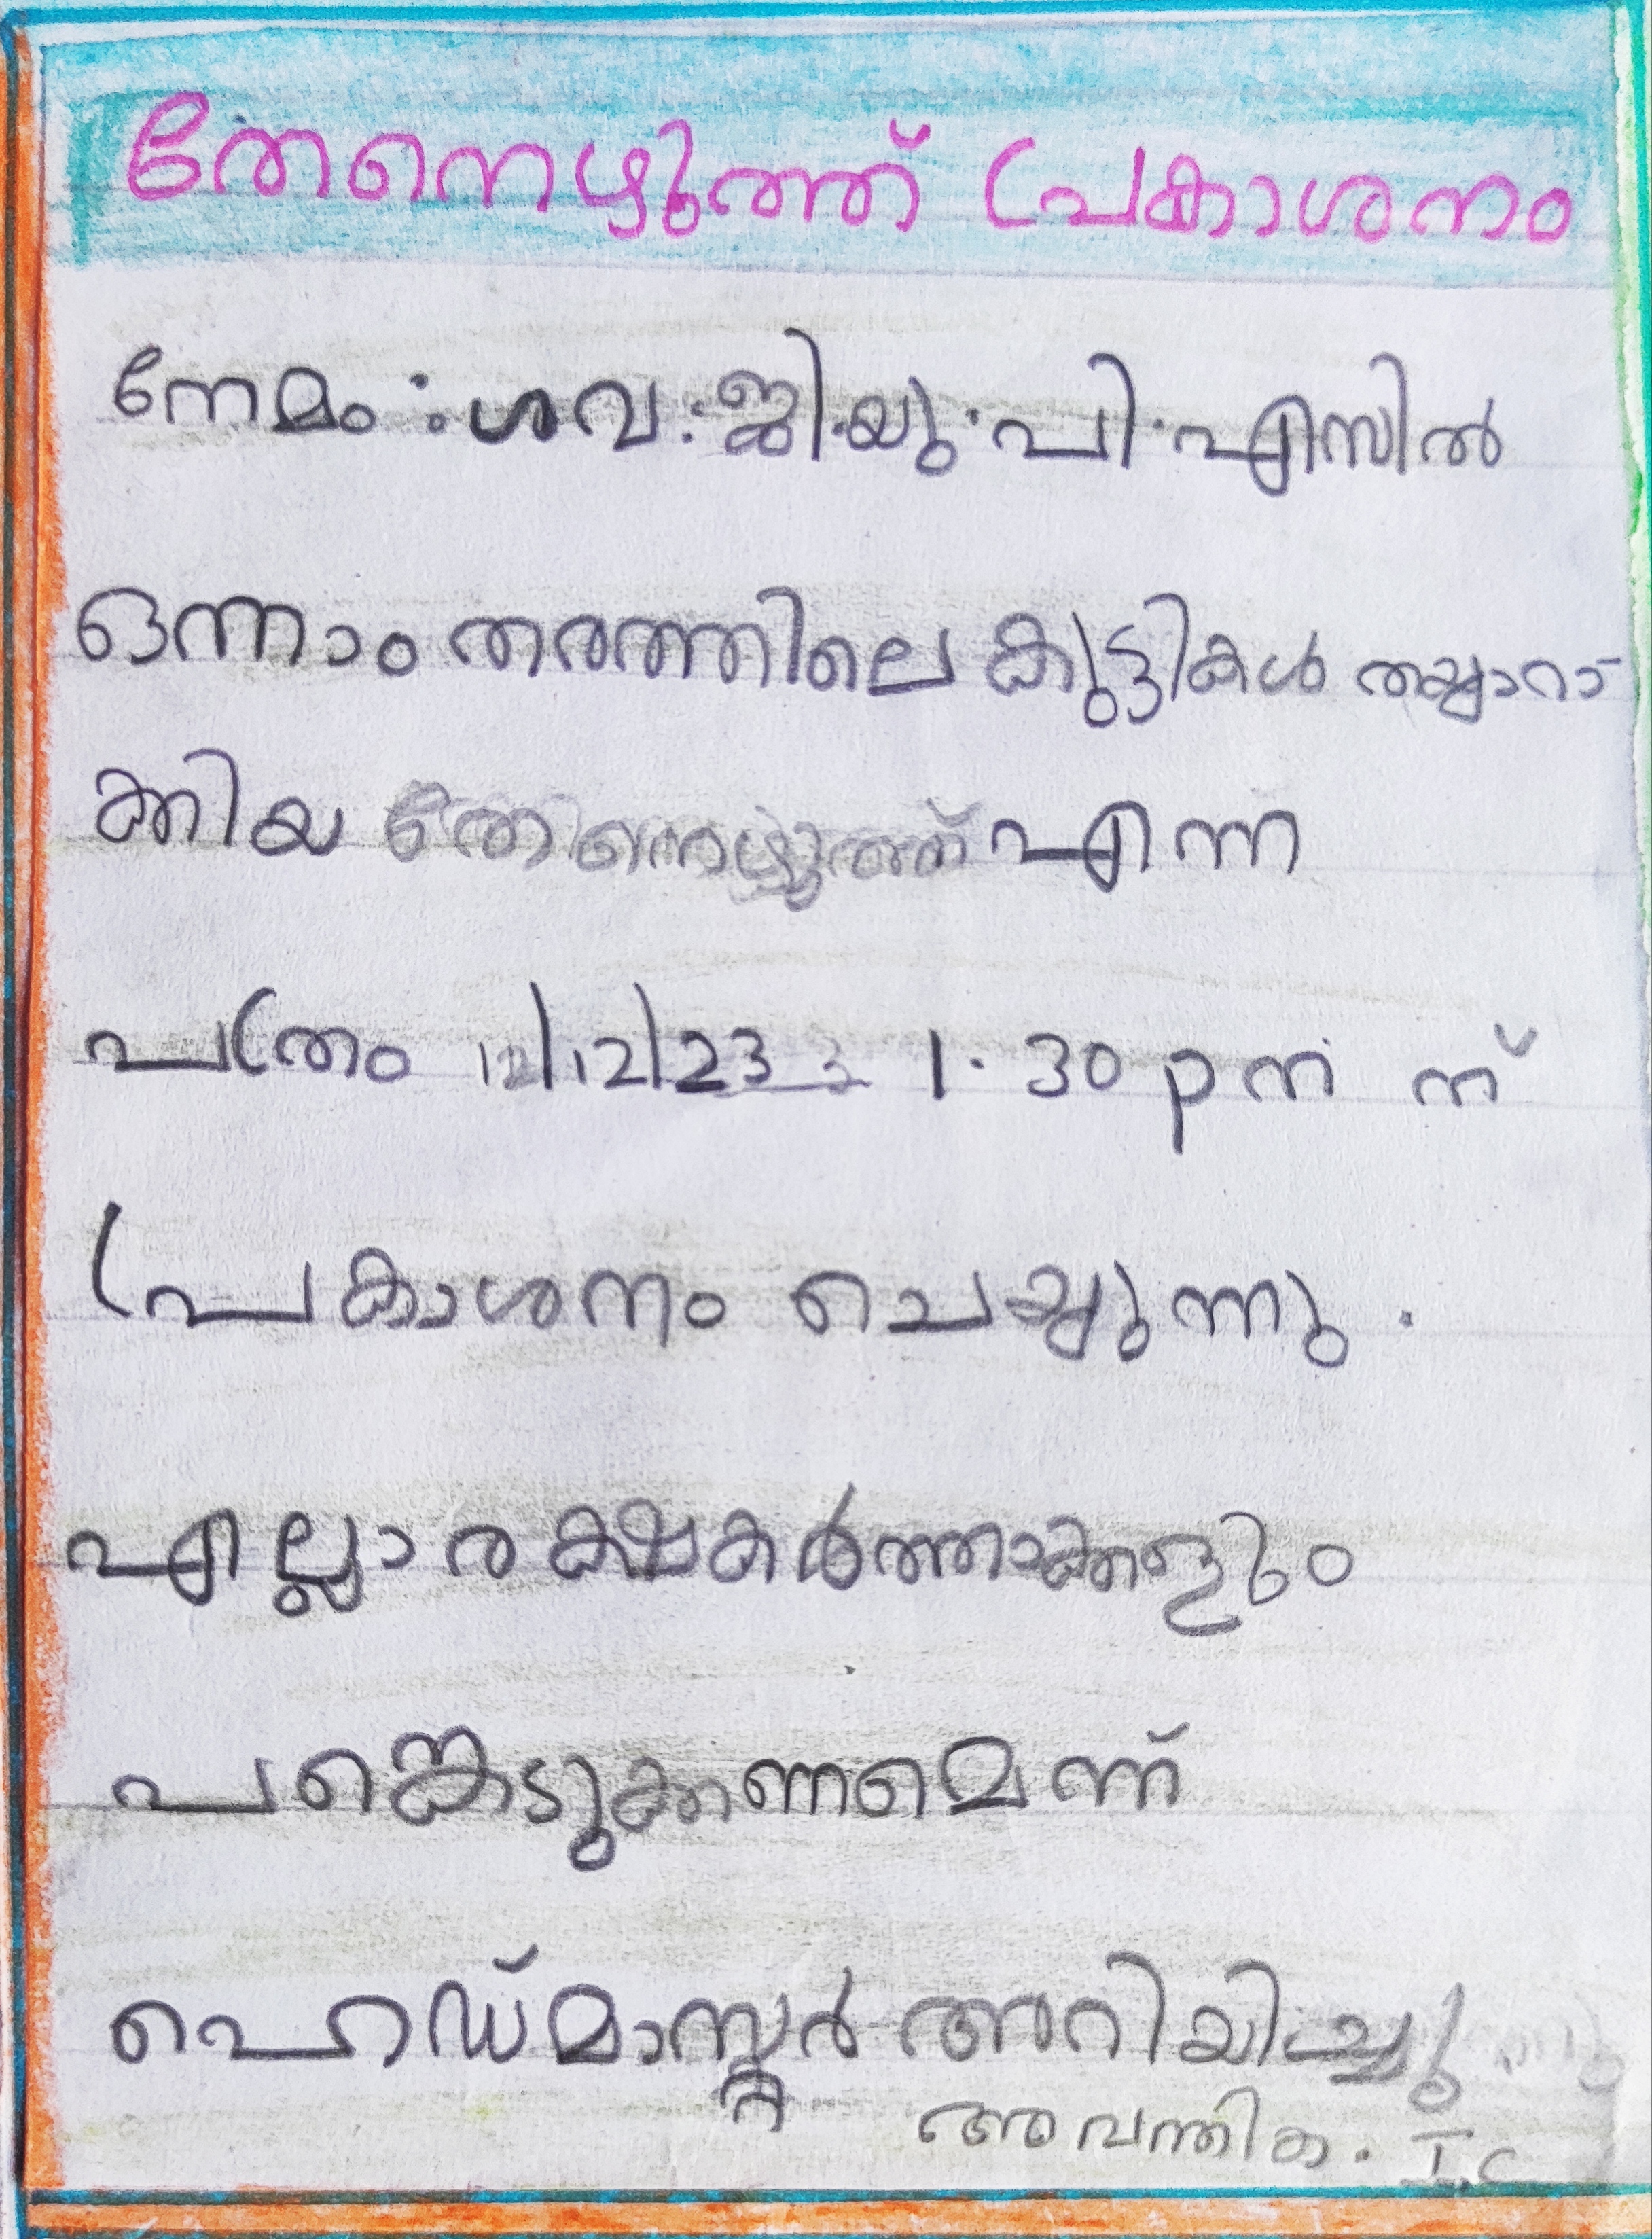 തേനെഴുത്ത് പ്രകാശനം
നേമം : ശവ : ജി.യു.പി.എസിൽ
ഒന്നാം തരത്തിലെ കുട്ടികൾ തയ്യാറാ-
ക്കിയ തേനെഴുത്ത് എന്ന
പത്രം 12/12/23 1.30 pm ന്
പ്രകാശനം ചെയ്യുന്നു.
എല്ലാ രക്ഷകർത്താക്കളും
പങ്കെടുക്കണമെന്ന്
ഹെഡ്മാസ്റ്റർ അറിയിച്ചു
അവന്തിക. I.C